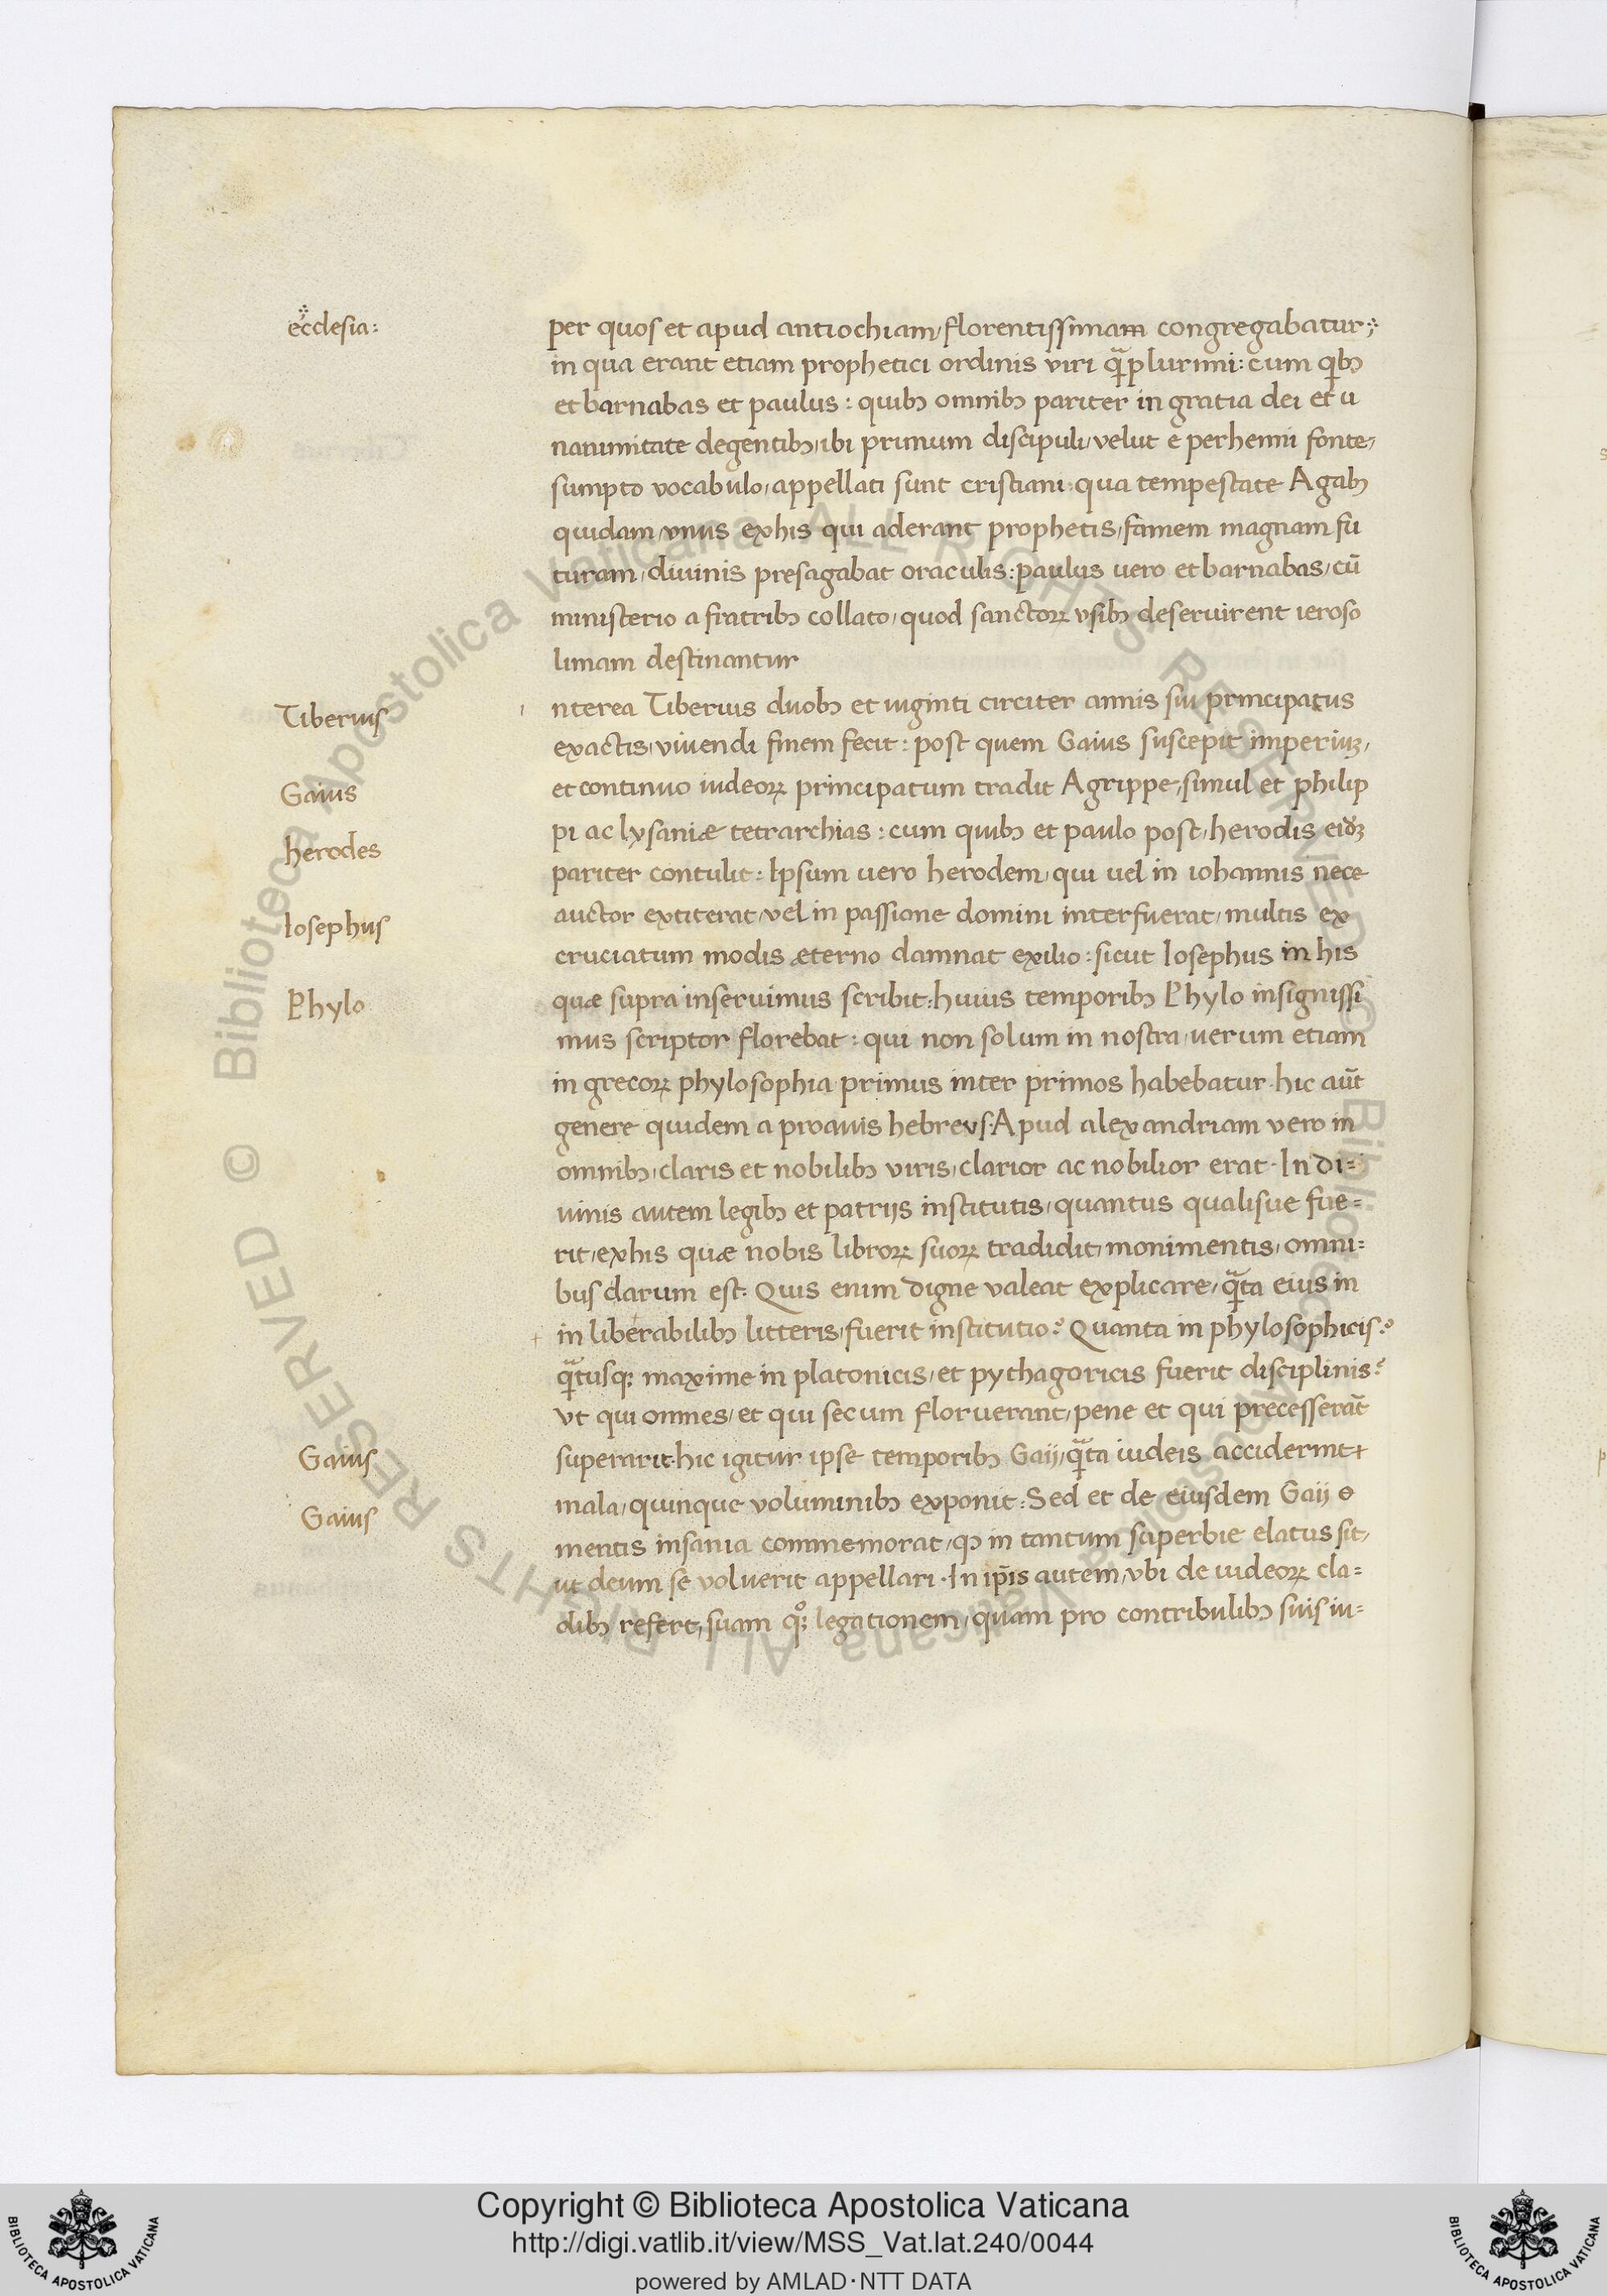 ecclesia:
per quos et apud antiochiam, florentissimam congregabatur;
in qua erant etiam prophetici ordinis viri qᷓplurimi: cum qibꝫ
et barnabas et paulus: quibꝫ omnibꝫ pariter in gratia dei et u
nanimitate degentibꝫ, ibi primum discipuli, velut e perhenni fonte,
sumpto vocabulo, appellati sunt cristiani: qua tempestate Agabꝫ
quidam, vnus exhis qui aderant prophetis, famem magnam fu
turam, diuinis presagabat oraculis: paulus uero et barnabas, cū
ministerio a fratribꝫ collato, quod sanctoꝝ vsibꝫ deseruirent ieroso
limam destinantur
Tiberius
i nterea Tiberius duobꝫ et uiginti circiter annis sui principatus
exactis, viuendi finem fecit: post quem Gaius suscepit imperiuꝫ,
Gaius
et continuo iudeoꝝ principatum tradit Agrippe, simul et philip
pi ac lysaniæ tetrarchias: cum quibꝫ et paulo post, herodis eidꝫ
herodes
pariter contulit: Ipsum uero herodem, qui uel in iohannis nece
auctor extiterat, vel in passione domini interfuerat, multis ex
Iosephus
cruciatum modis æterno damnat exilio: sicut Iosephus in his
quæ supra inseruimus scribit: huius temporibꝫ Phylo insignissi
Phylo
mus scriptor florebat: qui non solum in nostra, uerum etiam
in grecoꝝ phylosophia primus inter primos habebatur. hic aūt
genere quidem a proauis hebreus. Apud alexandriam vero in
omnibꝫ, claris et nobilibꝫ viris, clarior ac nobilior erat. In di=
uinis autem legibꝫ et patrijs institutis, quantus qualisue fue=
rit, exhis quæ nobis libroꝝ suoꝝ tradidit, monimentis, omni=
bus clarum est. Quis enim digne valeat explicare, qᷓta eius in
+ in liberabilibꝫ litteris, fuerit institutio? Quanta in phylosophicis?
qᷓtusqꝫ maxime in platonicis, et pythagoricis fuerit disciplinis?
vt qui omnes, et qui secum floruerant, pene et qui precesserāt
Gaius
superarit. hic igitur ipse temporibꝫ Gaij, qᷓta iudeis acciderint +
mala, quinque voluminibꝫ exponit: Sed et de eiusdem Gaij
Gaius
mentis insania commemorat, qꝫ in tantum superbie elatus sit,
ut deum se voluerit appellari. In ip̄is autem, vbi de iudeoꝝ cla=
dibꝫ refert, suam qͦꝫ legationem, quam pro contribulibꝫ suis iu=
Biblioteca Apostolica Vaticana ALL RIGHTS RESERVED © Biblioteca Apostolica Vaticana ALL RIGHTS RESERVED ©
Copyright © Biblioteca Apostolica Vaticana
http://digi.vatlib.it/view/MSS_Vat.lat.240/0044
powered by AMLAD·NTT DATA
BIBLIOTECA APOSTOLICA VATICANA
BIBLIOTECA APOSTOLICA VATICANA